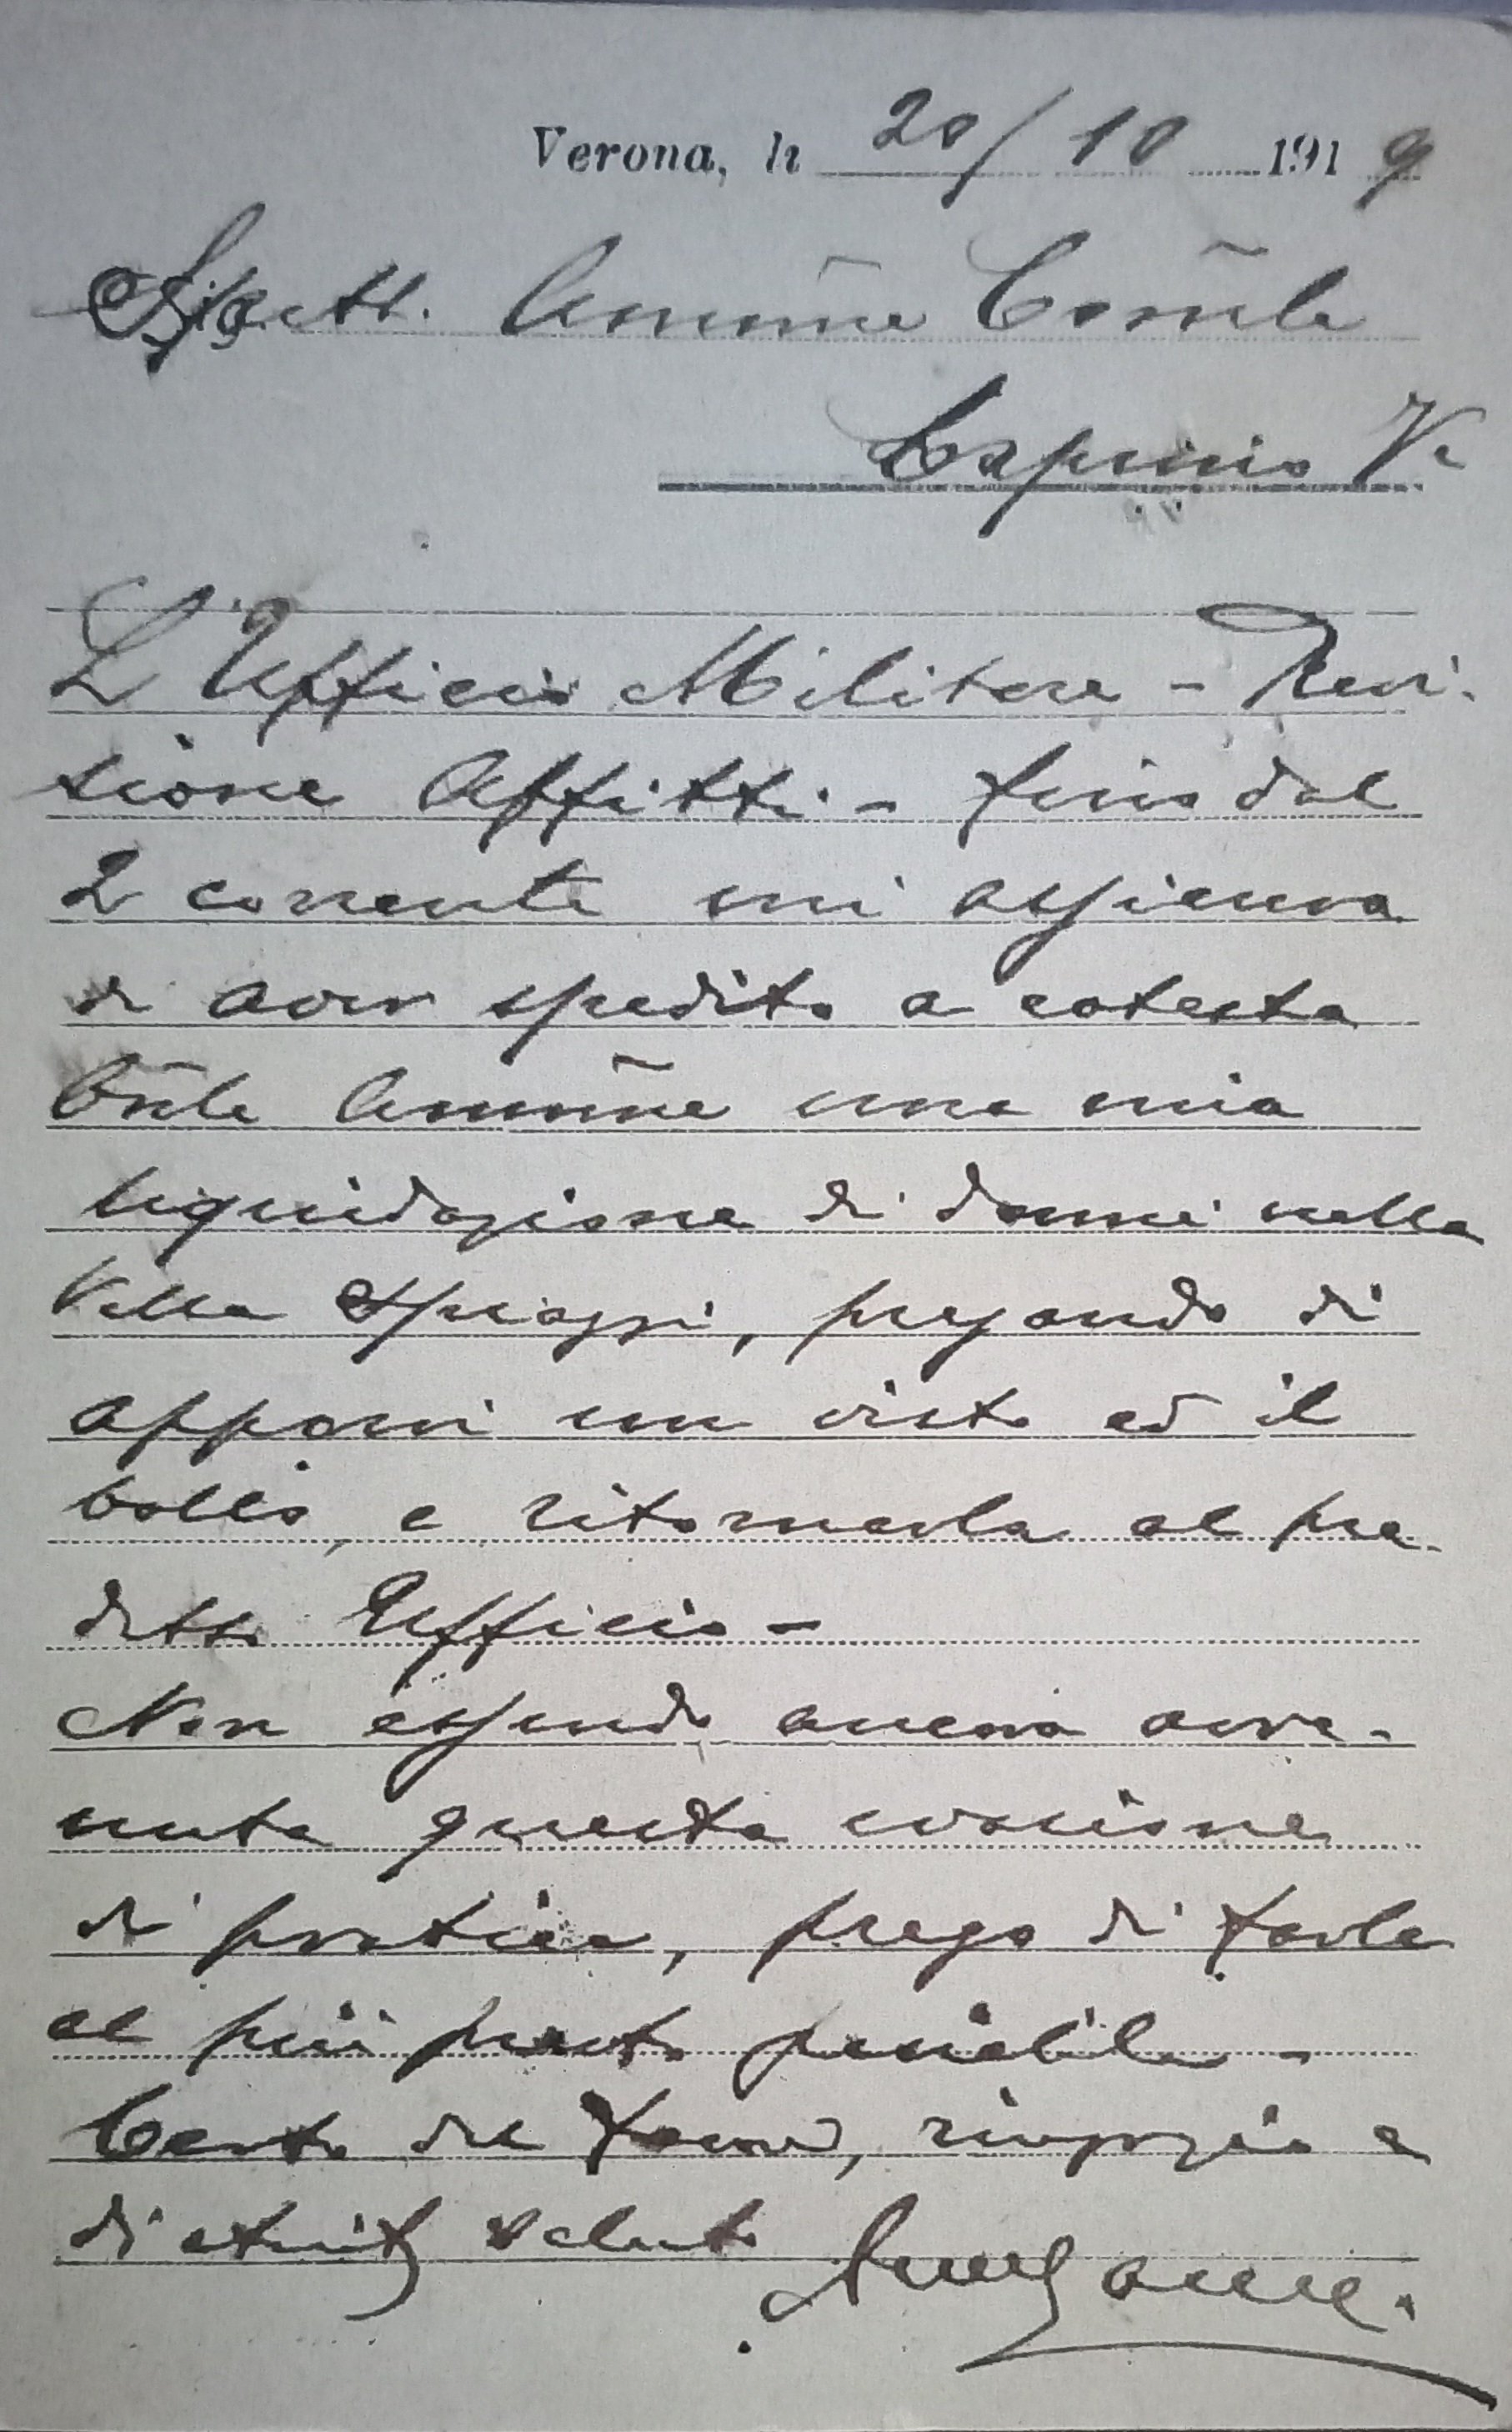 Verona, li 20/10 1919
Spett. Ammne Comle
Caprino Ve
L'Ufficio Militare - Revi-
sione Affitti - fino dal
2 corrente mi assicura
di aver spedito a cotesta
Cmle Ammne una mia
liquidazione di danni nella
Villa Spiazzi, pregando di
apporvi un visto ed il
bollo, e ritornarla al pre-
detto Ufficio -
Non essendo ancora avve-
nuta questa evasione
di pratica, prego di farla
al più presto possibile -
Certo del favore, ringrazio e
distint saluto